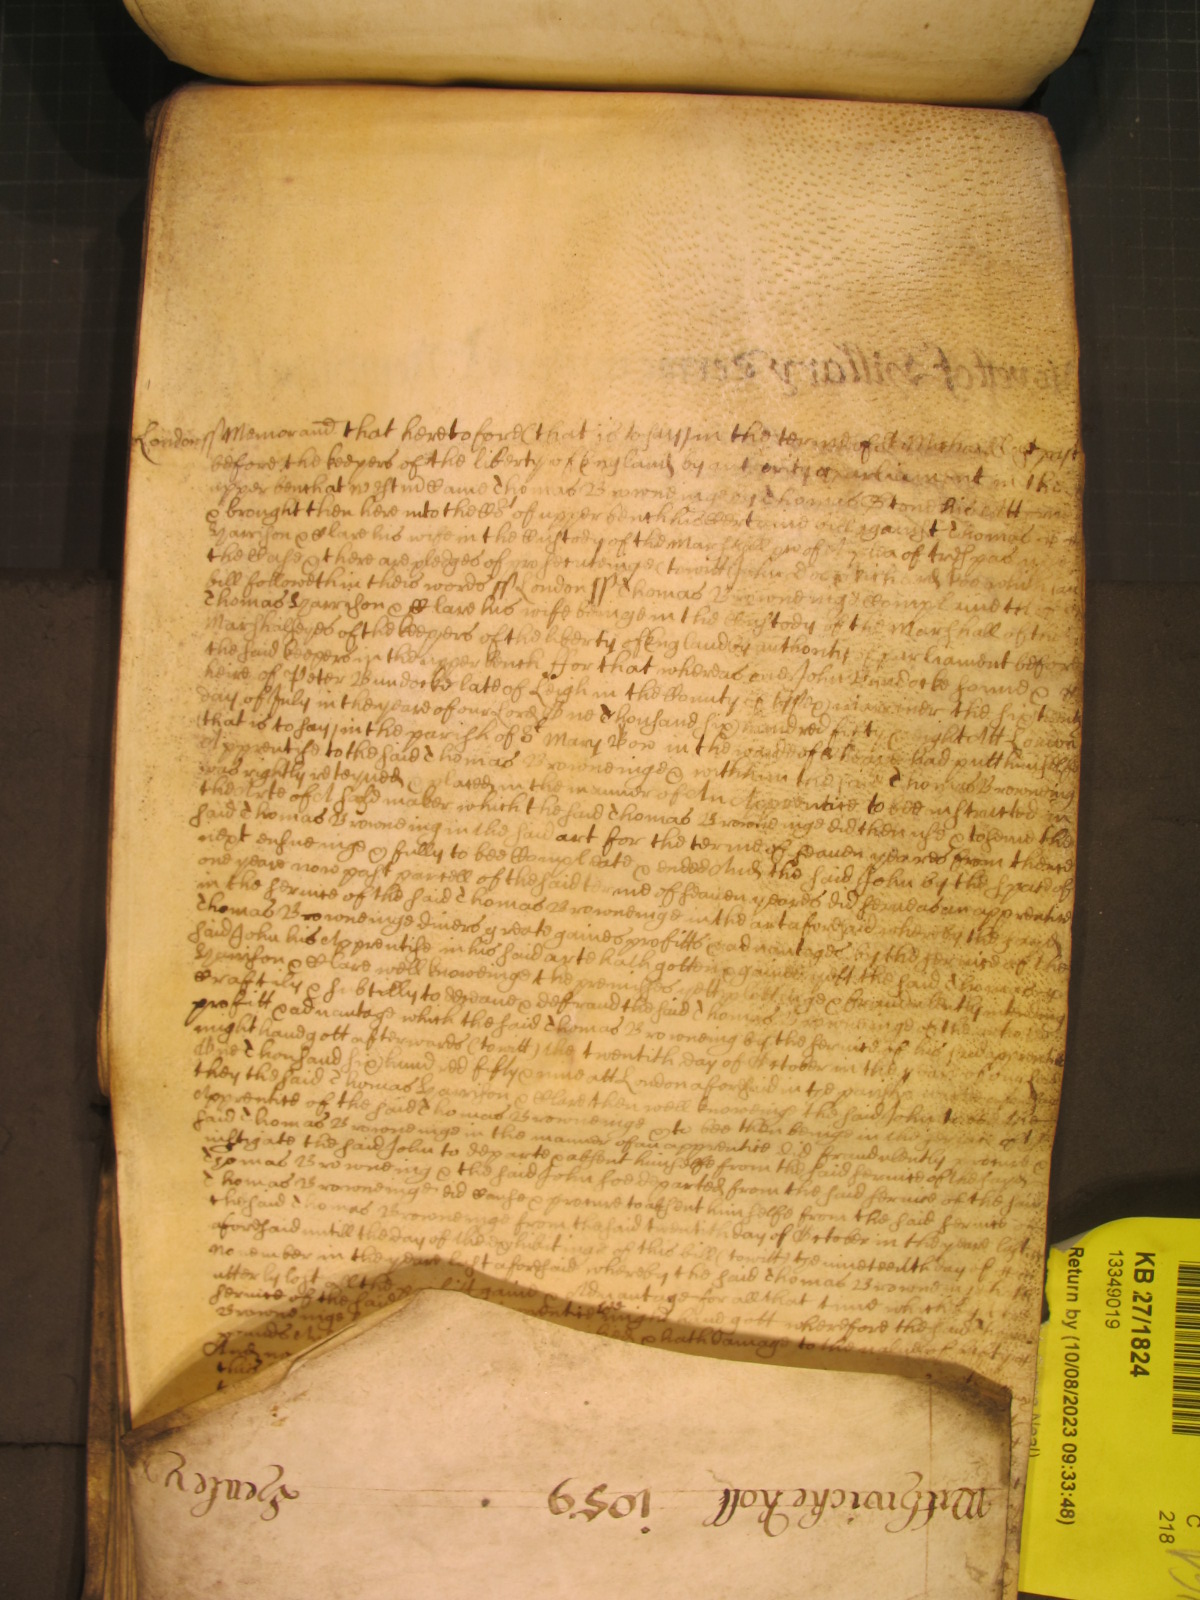 London ss Memorand that heretofore (that is to say) in the terme of St Michaell last past
before the keepers of the liberty of England by authority of parliament in the
upper bench at Westm came Thomas Browneinge by Thomas Stone his Attorney
& brought then here into the Co't of upper bench his certaine bill against Thomas
Harrison & Clare his wife in the Custody of the Marshall &c of a plea of trespas
the Case & there are pledges of prosecuteinge (towitt) John Doe & Richard Roe which
bill followeth in theis words ss London ss Thomas Browneinge complaineth of
Thomas Harrison & Clare his wife beinge in the Custody of the Marshall of the
Marshalseyes of the keepers of the liberty of England by authority of parliament before
the said keepers in the upper bench ffor that whereas one John Bundocke sonne &
heire of Peter Bundocke late of Leigh in the County of Essex marriner the sixteenth
day of July in the yeare of our Lord One Thousand six hundred fifty & eight Att London
(that is to say) in the parish of St Mary Bow in the warde of Cheape had putt himselfe
Apprentise to the said Thomas Browneinge & with him the said Thomas Browneing
was rightly reteyned & placed in the manner of An Apprentice to bee instructed in
the Arte of A maker which the said Thomas Browneinge did then use & to serve the
said Thomas Browneing in the said art for the terme of seaven yeares from thence
next ensueinge & fully to bee Compleate & ended And the said John by the space of
one yeare now past parcell of the said terme of seaven yeares did serve as an apprentice
in the service of the said Thomas Browneinge in the art aforesaid whereby the said
Thomas Browneinge divers greate gaines profitts & advantages by the service of the
said John his Apprentise in his said arte hath gotten & gained yett the said Thomas
Harrison & Clare well knoweinge the premisses & fraudulently intending
craftily & subtilly to deceave & defraud the said Thomas Browneinge of the
profitt & advantage which the said Thomas Browneing by the service of his said apprentice
might have gott afterwards (towitt) the twentith day of October in the yeare of our Lord
One Thousand six hundred fifty & nine att London aforesaid in the parish
they the said Thomas Harrison & Clare then well knoweinge the said John to bee the
Apprentice of the said Thomas Browneinge & to bee then beinge in the service of the
said Thomas Browneinge in the manner of an apprentice did fraudulently procure &
instigate the said John to departe & absent himselfe from the said service of the said
Thomas Browneing & the said John soe departed from the said service of the said
Thomas Browneinge did cause & procure to absent himselfe from the said service of
the said Thomas Browneinge from the said twentith day of October in the yeare last
aforesaid untill the day of the exhibitinge of this bill (towitt) the nineteenth day of
November in the yeare last aforesaid whereby the said Thomas Browneing hath
utterly lost all the profitt gaine & Advantage for all that time which
service of the said might have gott wherefore the said
Browneinge & hath Damage to the value of
pounds
And
this
Mussgwicke Roll 1059 Henley
KB 27/1824
13349019
Return by (10/08/2023 09:33:48)
218
C